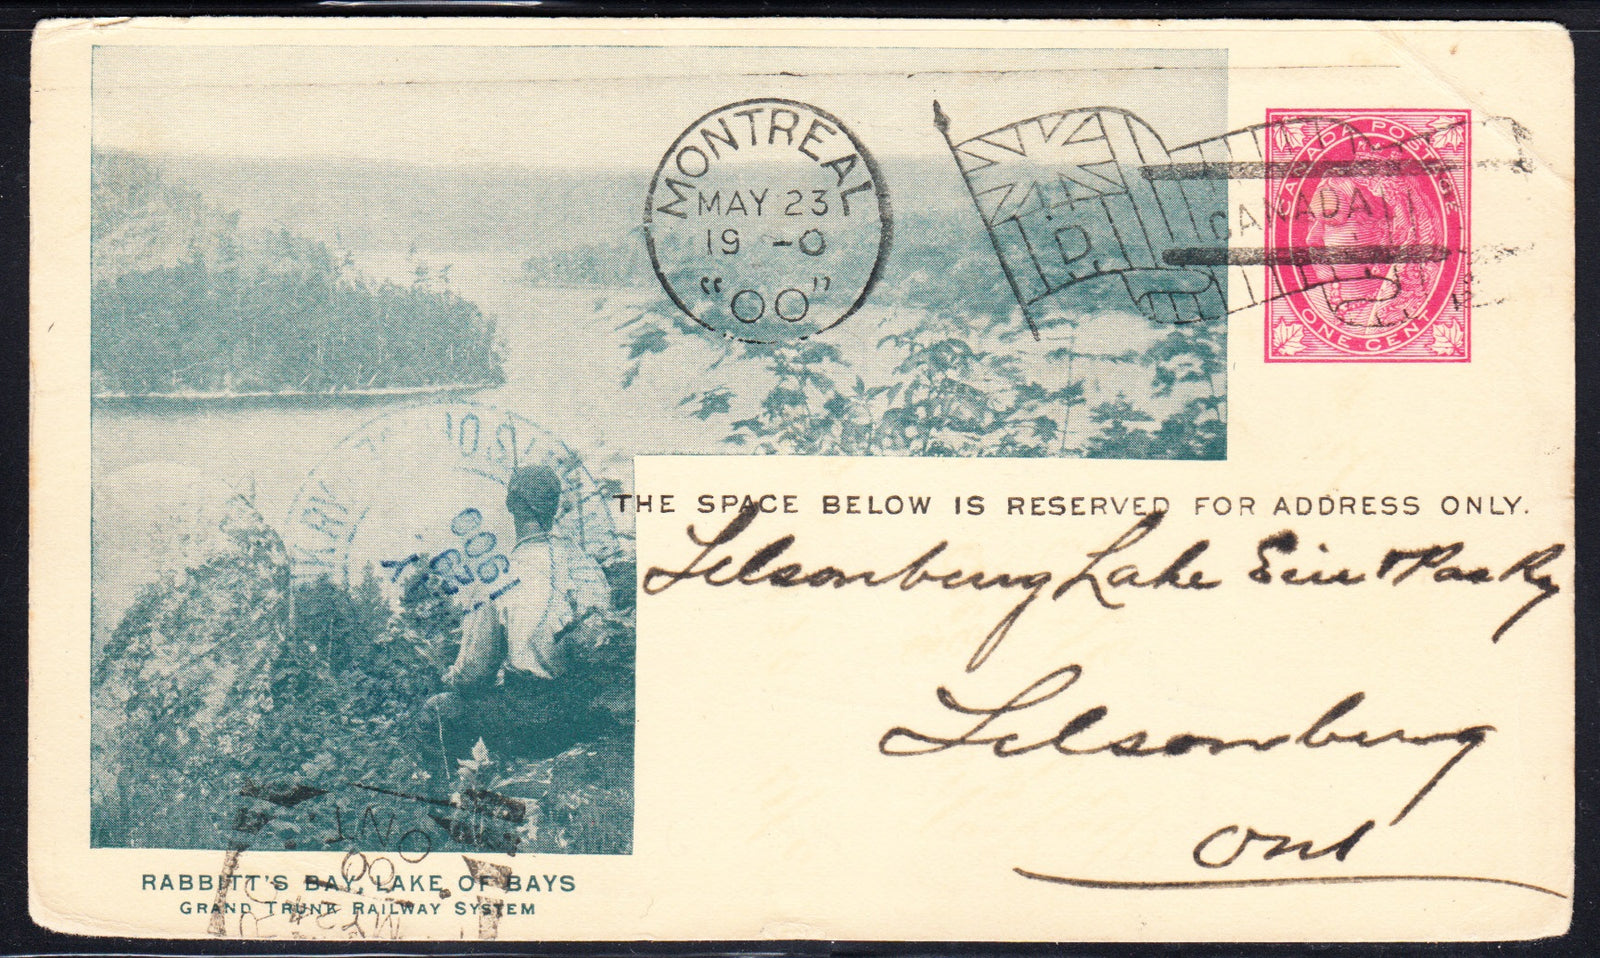 MONTREAL
MAY 23
19 - 0
"00"
D.
CANADA
CANADA POSTAGE
ONE CENT
THE SPACE BELOW IS RESERVED FOR ADDRESS ONLY.
Tilsonburg Lake Erie & Pac Ry
Tilsonburg
Ont
1900
ONT.
00
MY 24
RABBITT'S BAY, LAKE OF BAYS
GRAND TRUNK RAILWAY SYSTEM